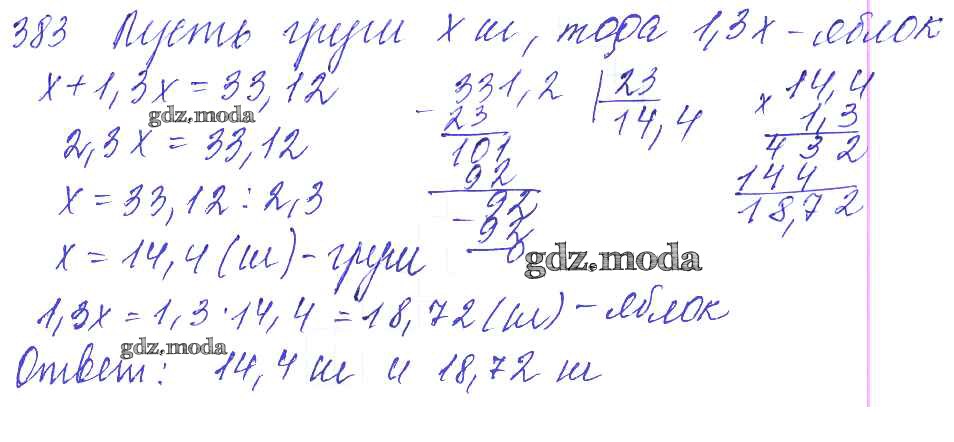 383 Пусть груш x т, тогда 1,3x - яблок
x + 1,3x = 33,12
gdz.moda
2,3x = 33,12
x = 33,12 : 2,3
x = 14,4 (т) - груш
331,2 | 23
- 23 14,4
101
92
- 92
92
0
x 14,4
1,3
432
144
18,72
gdz.moda
1,3x = 1,3 · 14,4 = 18,72 (т) - яблок
gdz.moda
Ответ: 14,4 т и 18,72 т